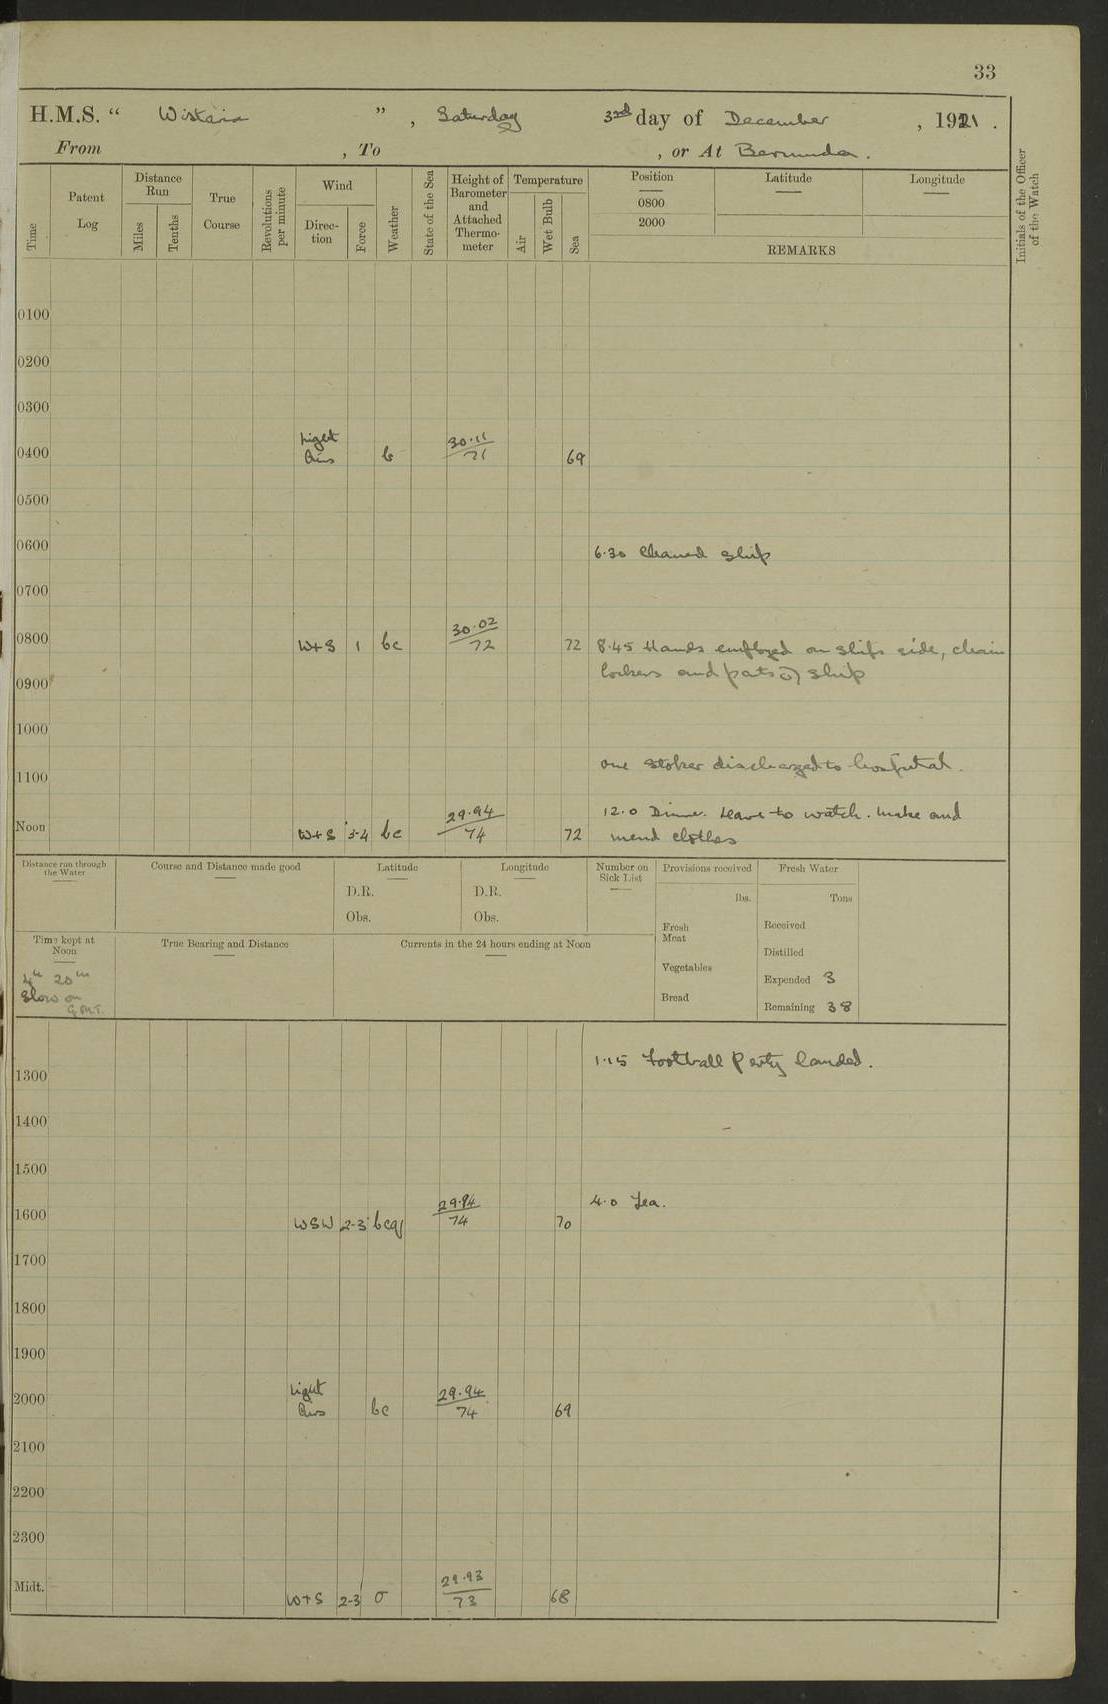 33
H.M.S. “ Wistaria ” , Saturday 3rd day of December , 1921 .
From , To , or At Bermuda .
Time
Patent Log
Distance Run
Miles
Tenths
True Course
Revolutions per minute
Wind
Direction
Force
Weather
State of the Sea
Height of Barometer and Attached Thermometer
Temperature
Air
Wet Bulb
Sea
Position
Latitude
Longitude
0800
2000
REMARKS
Initials of the Officer of the Watch
0100
0200
0300
Light 30.11
0400 Airs b 71 69
0500
0600 6.30 Cleaned ship
0700
30.02
0800 W+S 1 bc 72 72 8.45 Hands employed on ships side, chain
0900 lockers and parts of ship
1000
1100 One stoker discharged to hospital.
29.94 12.0 Dinner. Leave to watch. Make and
Noon W+S 3-4 bc 74 72 mend clothes
Distance run through the Water
Course and Distance made good
Latitude
D.R.
Obs.
Longitude
D.R.
Obs.
Number on Sick List
Provisions received
lbs.
Fresh Meat
Vegetables
Bread
Fresh Water
Tons
Received
Distilled
Expended 3
Remaining 38
Time kept at Noon
4h 20m
Slow on
G.M.T.
True Bearing and Distance
Currents in the 24 hours ending at Noon
1.15 Football Party landed.
1300
1400
1500
29.94 4.0 Tea.
1600 WSW 2-3 bcq 74 70
1700
1800
1900
Light 29.94
2000 Airs bc 74 69
2100
2200
2300
29.93
Midt. W+S 2-3 o 73 68